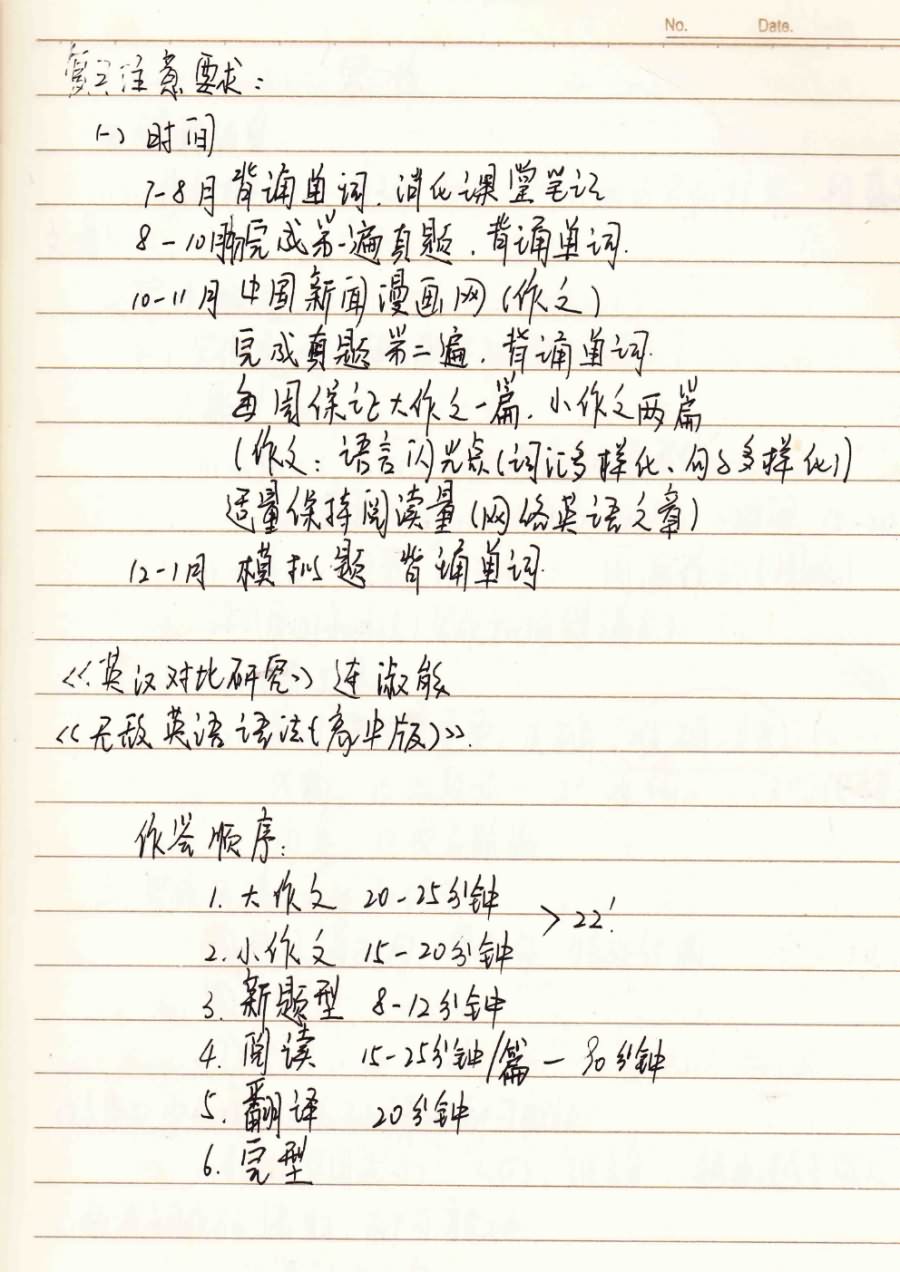 No. Date.
复习注意要求：
(一) 时间
7-8月背诵单词，消化课堂笔记
8-10月完成第一遍真题，背诵单词.
10-11月 中国新闻漫画网（作文）
完成真题第二遍，背诵单词.
每周保证大作文一篇，小作文两篇
(作文：语言闪光点(词汇多样化、句子多样化))
适量保持阅读量(网络英语文章)
12-1月 模拟题 背诵单词.
<<英汉对比研究>> 连淑能
<<无敌英语语法(高中版)>>.
作答顺序：
1. 大作文 20-25分钟
> 22'.
2. 小作文 15-20分钟
3. 新题型 8-12分钟
4. 阅读 15-25分钟/篇 — 90分钟
5. 翻译 20分钟
6. 完型